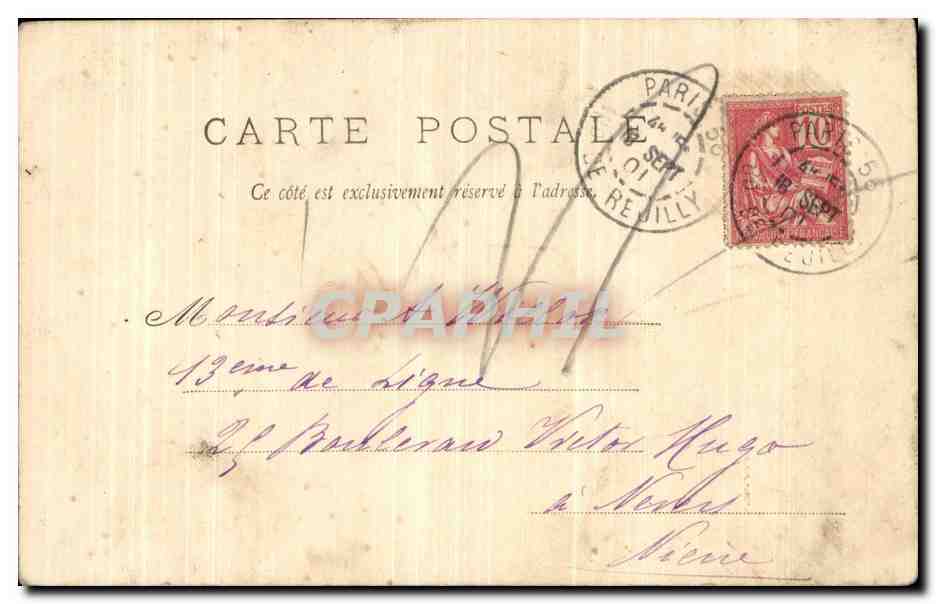 CARTE POSTALE
Ce côté est exclusivement réservé à l'adresse.
PARIS 56
18 SEPT
01
REUILLY
POSTES
10
PARIS 56
18 SEPT
01
REUILLY
CPAPHIL
Monsieur A.
13eme de Ligne
25 Boulevard Victor Hugo
à Nevers
Nièvre